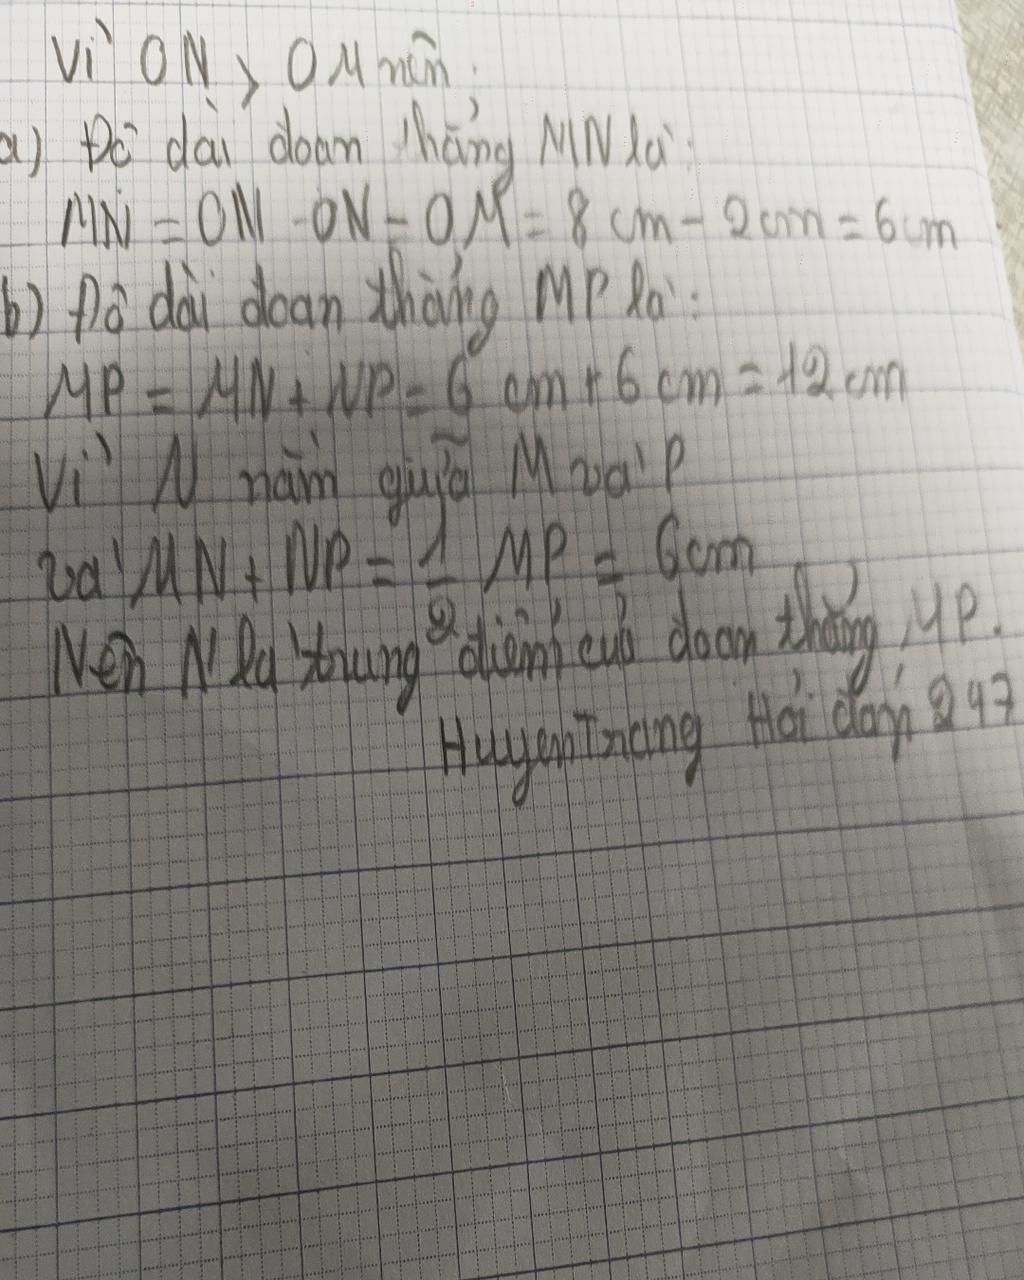 Vì ON > OM nên:
a) Độ dài đoan thẳng MN là:
MN = OM - ON - OM = 8 cm - 2cm = 6cm
b) Độ dài đoan thẳng MP là:
MP = MN + NP = 6 cm + 6 cm = 12 cm
Vì N nằm giữa M và P
và MN + NP = 1/2 MP = 6cm
Nên N là trung điểm của đoan thẳng MP.
HuyenTrang Hỏi đáp 247